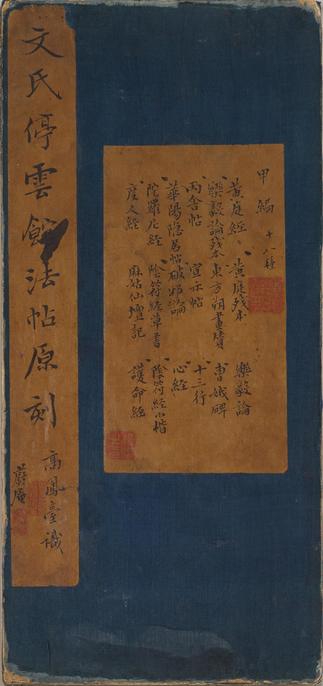 文氏停雲館法帖原刻
高鳳臺識
甲編 十八種
黃庭經 黃庭殘本 樂毅論
樂毅論殘本 東方朔畫贊 曹娥碑
丙舍帖 宣示帖 十三行
華陽隱居帖 破邪論 心經
陀羅尼經 陰符經草書 陰符經小楷
度人經 麻姑仙壇記 護命經